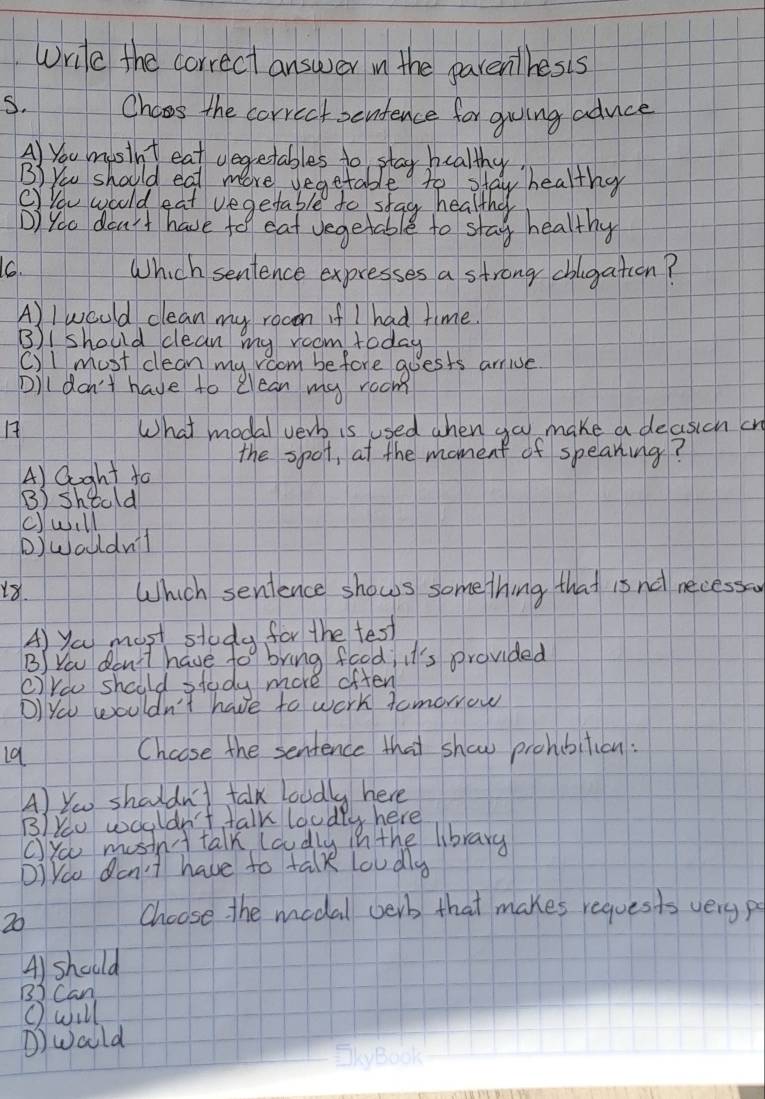 Write the correct answer in the parenthesis
5. Choos the correct sentence for giving advice
A) You mustn't eat vegetables to stay healthy.
B) You should eat more vegetable to stay healthy
C) You would eat vegetable to stay healthy
D) You don't have to eat vegetable to stay healthy
16. Which sentence expresses a strong obligation?
A) I would clean my room if I had time.
B) I should clean my room today
C) I must clean my room before guests arrive
D) I don't have to clean my room
17 What modal verb is used when you make a decision on
the spot, at the moment of speaking?
A) Ought to
B) Should
C) will
D) Wouldn't
18. Which sentence shows something that is not necessar
A) You must study for the test
B) You don't have to bring food; it's provided
C) You should study more often
D) You wouldn't have to work tomorrow
19 Choose the sentence that show prohibition:
A) You shouldn't talk loudly here
B) You wouldn't talk loudly here
C) You mustn't talk loudly in the library
D) You don't have to talk loudly
20 Choose the modal verb that makes requests very po
A) Should
B) Can
C) Will
D) Would
SkyBook